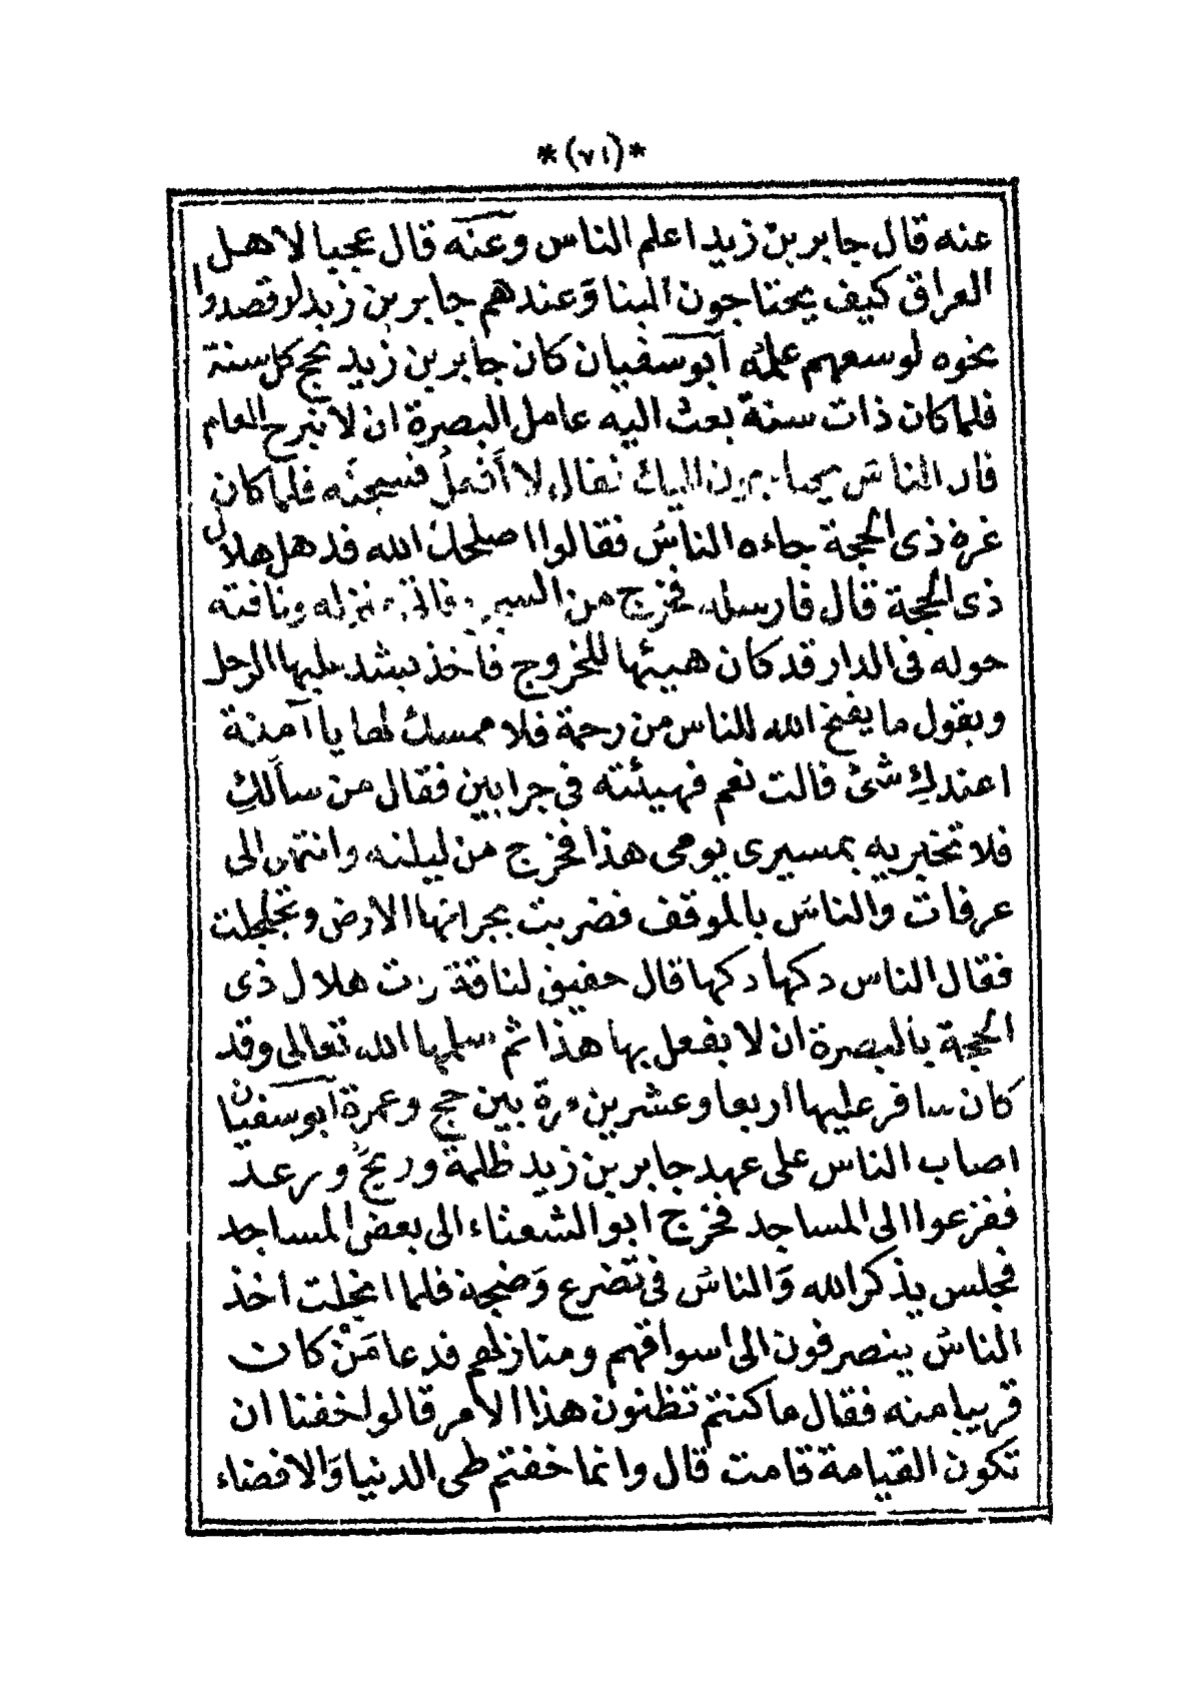 *(٧١)*
عنه قال جابر بن زيد اعلم الناس وعنه قال عجبا لاهل
العراق كيف يحتاجون الينا وعندهم جابر بن زيد لو قصدوا
نحوه لوسعهم علمُه ابوسفيان كان جابر بن زيد يحج كل سنة
فلما كان ذات سنة بعث اليه عامل البصرة ان لا تبرح العام
فان الناسَ يحتاجون اليك فقال لا أفعلُ فسجنَه فلما كان
غرة ذى الحجة جاءه الناسُ فقالوا اصلحك الله قد هل هلال
ذى الحجة قال فارسله فخرج من السجن فاتى منزله وناقته
حوله فى الدار قد كان هيئها للخروج فأخذ يشد عليها الرحل
ويقول ما يفتح الله للناس من رحمة فلا ممسك لها يا آمنة
اعندكِ شئ قالت نعم فهيئته فى جرابين فقال من سألكِ
فلا تخبريه بمسيرى يومى هذا فخرج من ليلته وانتهى الى
عرفات والناسُ بالموقف فضربت بجرانها الارض وتجلجلت
فقال الناس ذكها ذكها قال حقيق لناقة رأت هلال ذى
الحجة بالبصرة ان لا يفعل بها هذا ثم سلمها الله تعالى وقد
كان سافر عليها اربعا وعشرين مرة بين حج وعمرة ابوسفيان
اصاب الناس على عهد جابر بن زيد ظلمة وريحٌ ورعد
ففزعوا الى المساجد فخرج ابو الشعثاء الى بعض المساجد
فجلس يذكر الله وَالناسُ فى تضرع وَضجة فلما انجلت أخذ
الناسُ ينصرفون الى اسواقهم ومنازلهم فدعا مَنْ كان
قريبا منه فقال ما كنتم تظنون هذا الأمر قالوا خفنا ان
تكون القيامة قامت قال وانما خفتم طى الدنيا وَالافضاء